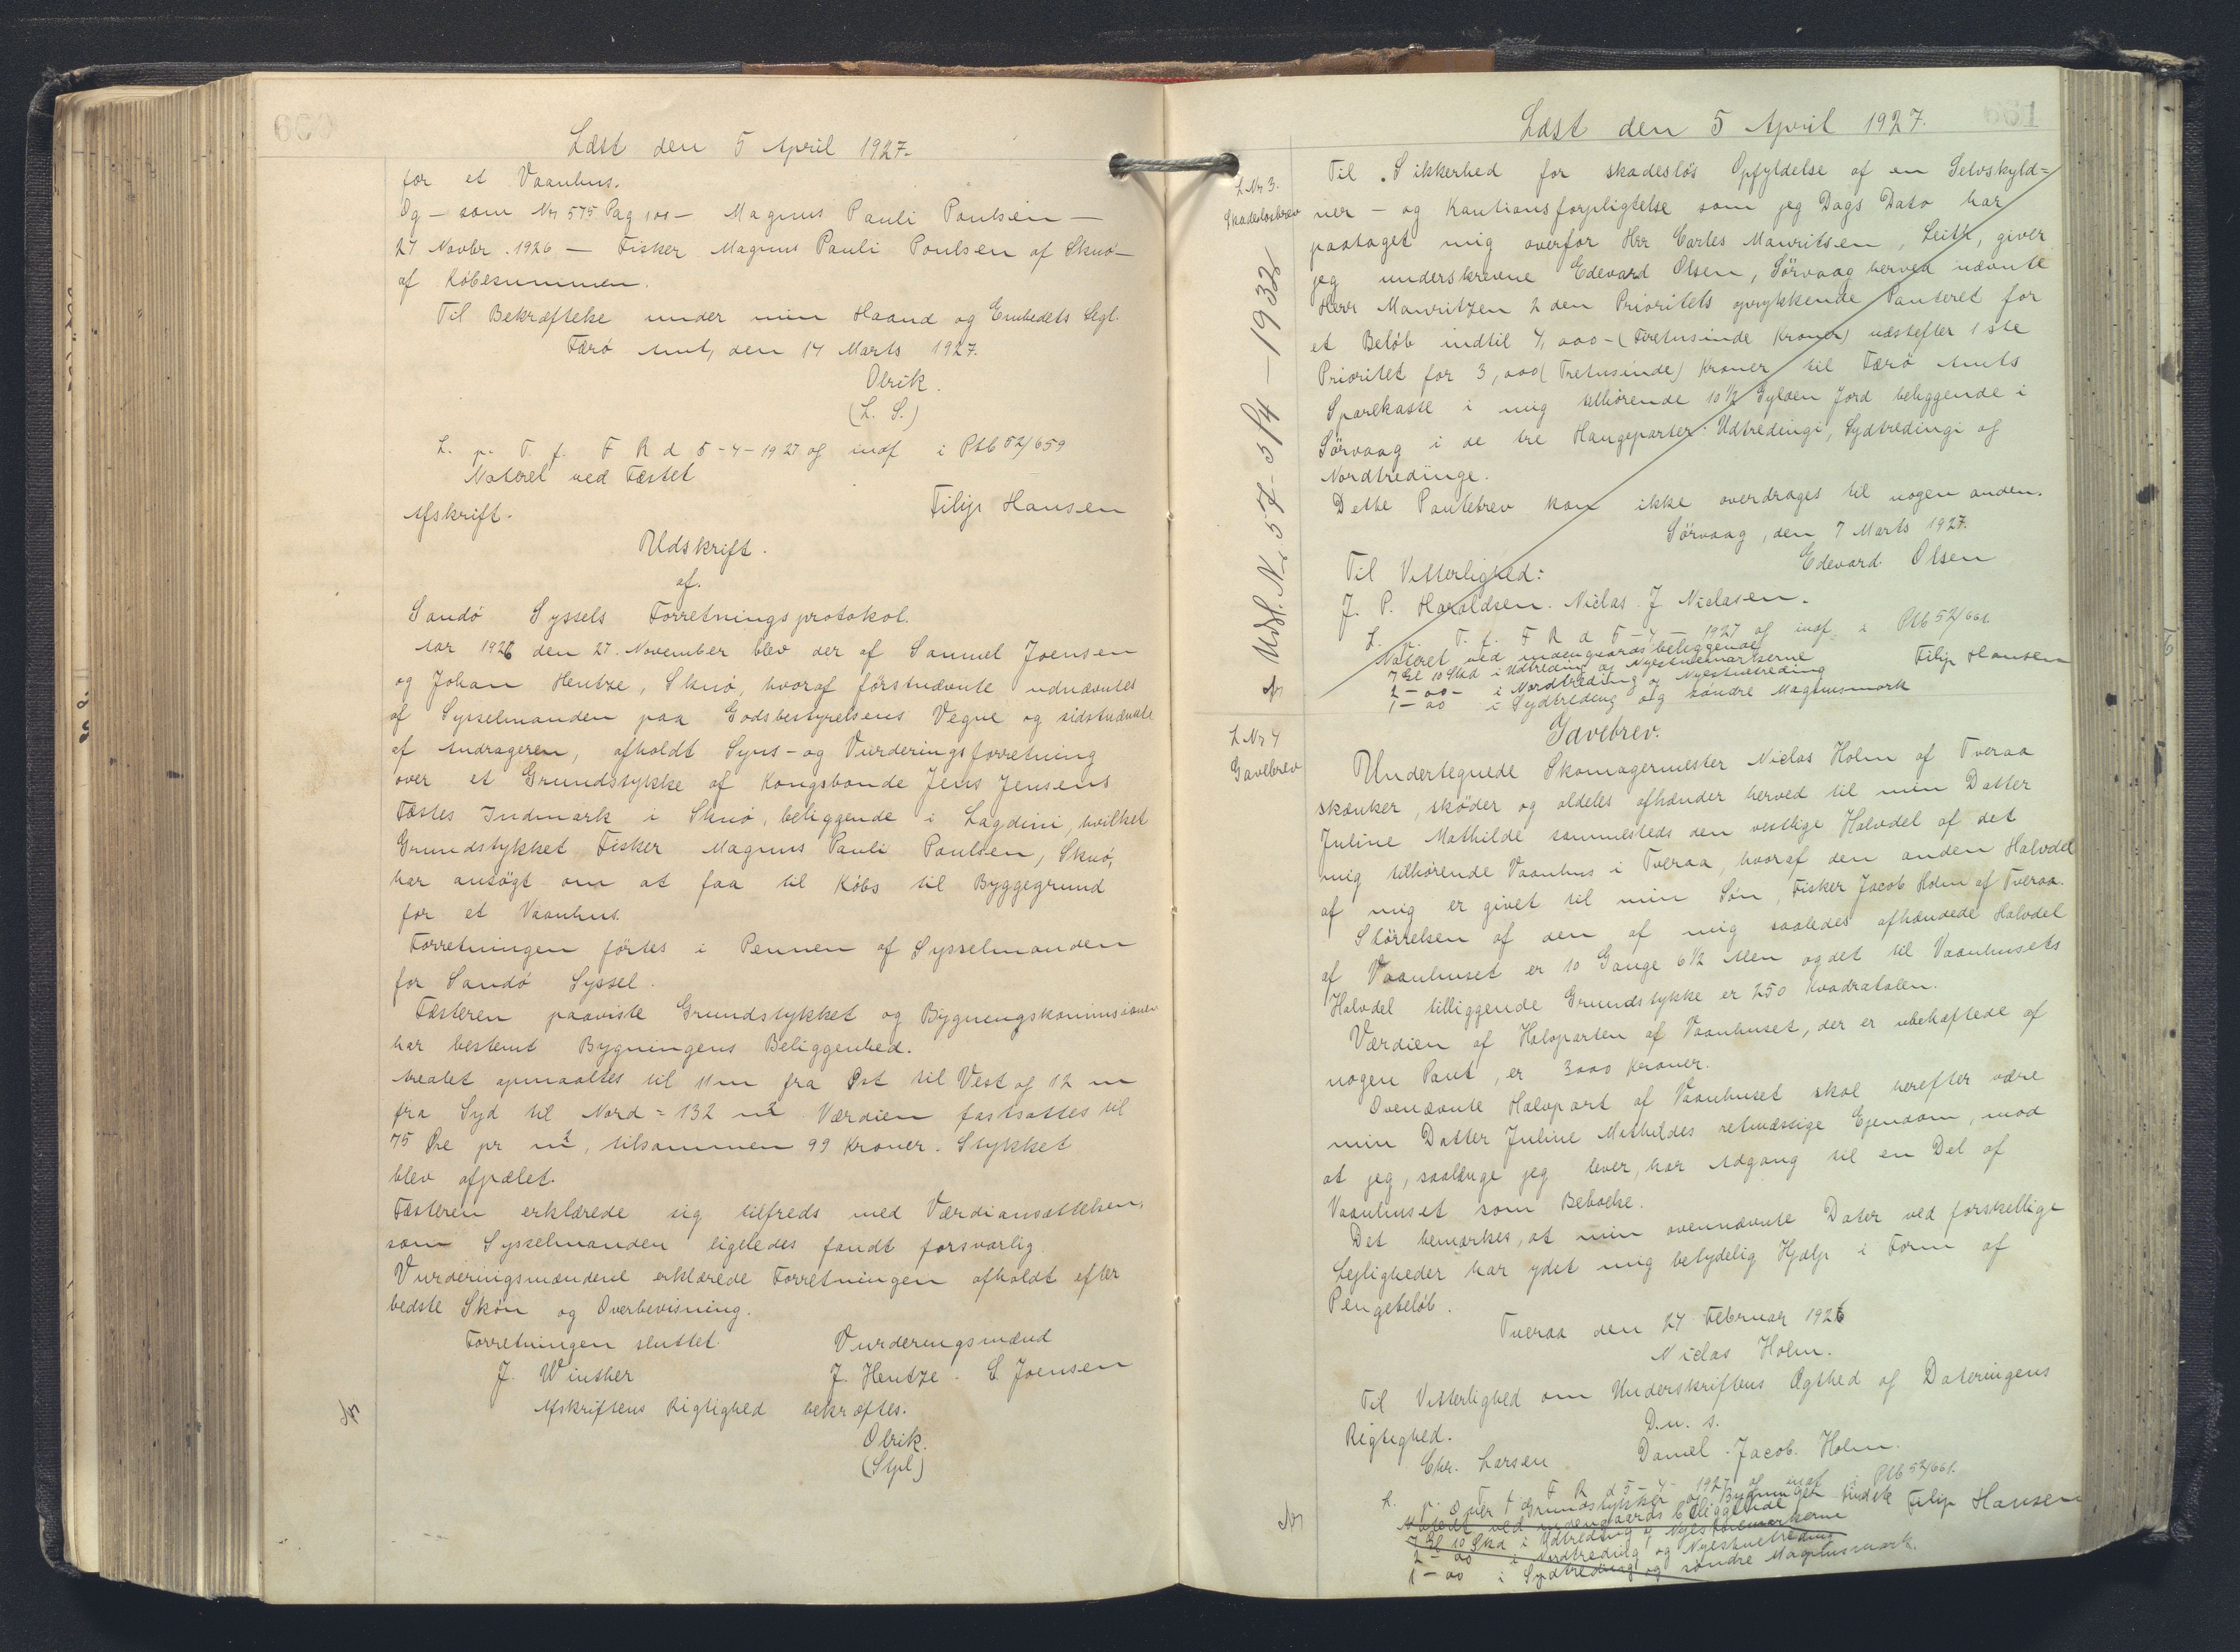 660
Læst den 5 April 1927.
for et Vaanhus.
Og - som Nr 575 Pag 100 - Magnus Pauli Poulsen -
27 Novbr. 1926 - Fisker Magnus Pauli Poulsen af Skuø -
af Købesummen.
Til Bekræftelse under min Haand og Embedets Segl.
Færø Amt, den 14 Marts 1927.
Olrik.
(L. S.)
L. p. T. f. F R d 5-4-1927 og indf i Ptb 52/659
Noteret ved Fæstet
Filip Hansen
Afskrift.
Udskrift.
af.
Sandø Syssels Forretningsprotokol.
Aar 1926 den 27. November blev der af Samuel Joensen
og Johan Hentze, Skuø, hvoraf förstnævnte udnævntes
af Sysselmanden paa Godsbestyrelsens Vegne og sidstnævnte
af Andrageren, afholdt Syns- og Vurderingsforretning
over et Grundstykke af Kongsbonde Jens Jensens
Fæstes Indmark i Skuø, beliggende i Lagdini, hvilket
Grundstykket Fisker Magnus Pauli Poulsen, Skuø,
har ansøgt om at faa til Købs til Byggegrund
for et Vaanhus.
Forretningen førtes i Pennen af Sysselmanden
for Sandø Syssel.
Fæsteren paaviste Grundstykket og Bygningskommissionen
har bestemt Bygningens Beliggenhed.
Arealet opmaaltes til 11 m fra Øst til Vest og 12 m
fra Syd til Nord = 132 m² Værdien fastsattes til
75 Øre pr m², tilsammen 99 Kroner. Stykket
blev afpælet.
Fæsteren erklærede sig tilfreds med Værdiansættelsen,
som Sysselmanden ligeledes fandt forsvarlig
Vurderingsmændene erklærede Forretningen afholdt efter
bedste Skøn og Overbevisning.
Forretningen sluttet. Vurderingsmænd
J. Winther J. Hentze. S. Joensen
Afskriftens Rigtighed bekræftes.
Olrik.
(Stpl)
661
Læst den 5 April 1927.
L Nr 3.
Skadesløsbrev
Udsl. Nr 57 - 5/4 - 1932
Til Sikkerhed for skadesløs Opfyldelse af en Selvskyld=
ner - og Kautionsforpligtelse som jeg Dags Dato har
paataget mig overfor Hrr Carles Mauritsen, Leith, giver
jeg underskrevne Edevard Olsen, Sörvaag herved nævnte
Herr Mauritzen 2 den Prioritets oprykkende Panteret for
et Beløb indtil 4,000 - (Firetusinde Kroner) næstefter 1 ste
Prioritet for 3,000 (Tretusinde) Kroner til Færø Amts
Sparekasse i mig tilhørende 10 1/2 Gylden Jord beliggende i
Sörvaag i de tre Haugeparter: Udtredingi, Sydtredingi og
Nordtredinge.
Dette Pantebrev kan ikke overdrages til nogen anden.
Sörvaag, den 7 Marts 1927.
Edevard Olsen
Til Vitterlighed:
J. P. Haraldsen. Niclas J Niclasen.
L. p. T. f. F R d 5-4-1927 og indf i Ptb 52/661.
Noteret ved indengaards beliggende
7 Gl 10 Skd i Udtreding og Nyestuemarkerne
2 - 00 - i Nordtreding og Nyestuetreding
1 - 00 i Sydtreding og søndre Magnusmark
Filip Hansen
L Nr 4
Gavebrev
Gavebrev.
Undertegnede Skomagermester Niclas Holm af Tveraa
skænker, skøder og aldeles afhænder herved til min Datter
Juline Mathilde sammesteds den vestlige Halvdel af det
mig tilhørende Vaanhus i Tveraa, hvoraf den anden Halvdel
af mig er givet til min Søn, Fisker Jacob Holm af Tveraa.
Størrelsen af den af mig saaledes afhændede Halvdel
af Vaanhuset er 10 Gange 6 1/2 Alen og det til Vaanhusets
Halvdel tilliggende Grundstykke er 250 Kvadratalen.
Værdien af Halvparten af Vaanhuset, der er ubehæftede af
nogen Pant, er 3000 Kroner.
Ovenævnte Halvpart af Vaanhuset skal herefter være
min Datter Juline Mathildes retmæssige Ejendom, mod
at jeg, saalænge jeg lever, har Adgang til en Del af
Vaanhuset som Beboelse.
Det bemærkes, at min ovennævnte Dater ved forskellige
Lejligheder har ydet mig betydelig Hjælp i Form af
Pengebeløb.
Tveraa den 27 Februar 1926
Niclas Holm.
Til Vitterlighed om Underskriftens Ægthed og Dateringens
Rigtighed. D. u. s.
Chr. Larsen Daniel Jacob. Holm.
L. p. T. f. F R d 5-4-1927 og indf i Ptb 52/661.
Over Grundstykker og Bygninger
Filip Hansen
Noteret ved indengaards beliggende
7 Gl 10 Skd i Udtreding og Nyestuemarkerne
2 - 00 i Nordtreding og Nyestuetreding
1 - 00 i Sydtreding og søndre Magnusmark.